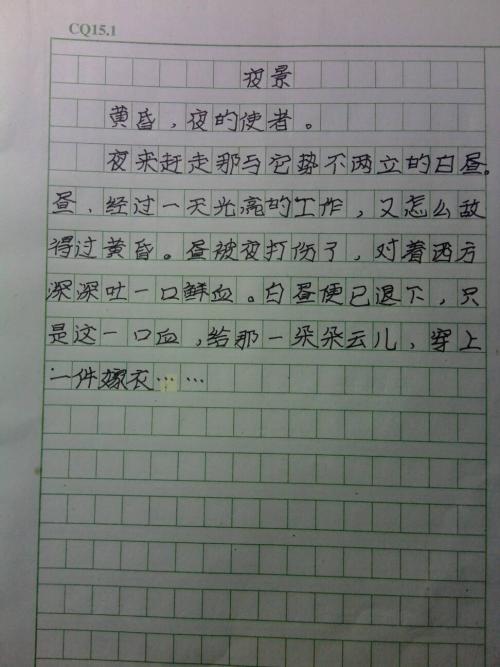 CQ15.1
夜景
黄昏，夜的使者。
夜来赶走那与它势不两立的白昼。
昼，经过一天光亮的工作，又怎么敌
得过黄昏。昼被夜打伤了，对着西方
深深吐一口鲜血。白昼便已退下，只
是这一口血，给那一朵朵云儿，穿上
一件嫁衣……